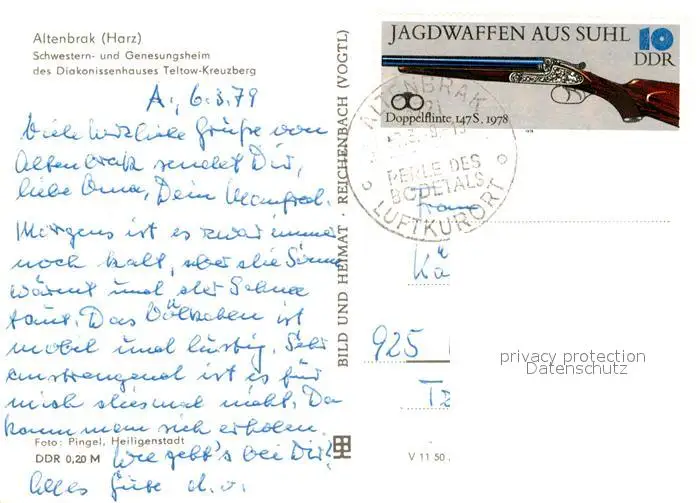 Altenbrak (Harz)
Schwestern- und Genesungsheim
des Diakonissenhauses Teltow-Kreuzberg
A., 6.3.79
Viele herzliche Grüße von
Altenbrak sendet Dir,
liebe Oma, Dein Manfred.
Morgens ist es zwar immer
noch kalt, aber die Sonne
wärmt und der Schnee
taut. Das Völkchen ist
mobil und lustig. Sehr
anstrengend ist es für
mich diesmal nicht. Da
kann man sich erholen.
Wie geht's bei Dir?
Alles Gute d. o.
Foto: Pingel, Heiligenstadt
DDR 0,20 M
BILD UND HEIMAT · REICHENBACH (VOGTL)
JAGDWAFFEN AUS SUHL
10
DDR
Doppelflinte 147S, 1978
ALTENBRAK
PERLE DES
BODETALS
LUFTKURORT
Frau
Kä
925
V 11 50
privacy protection
Datenschutz